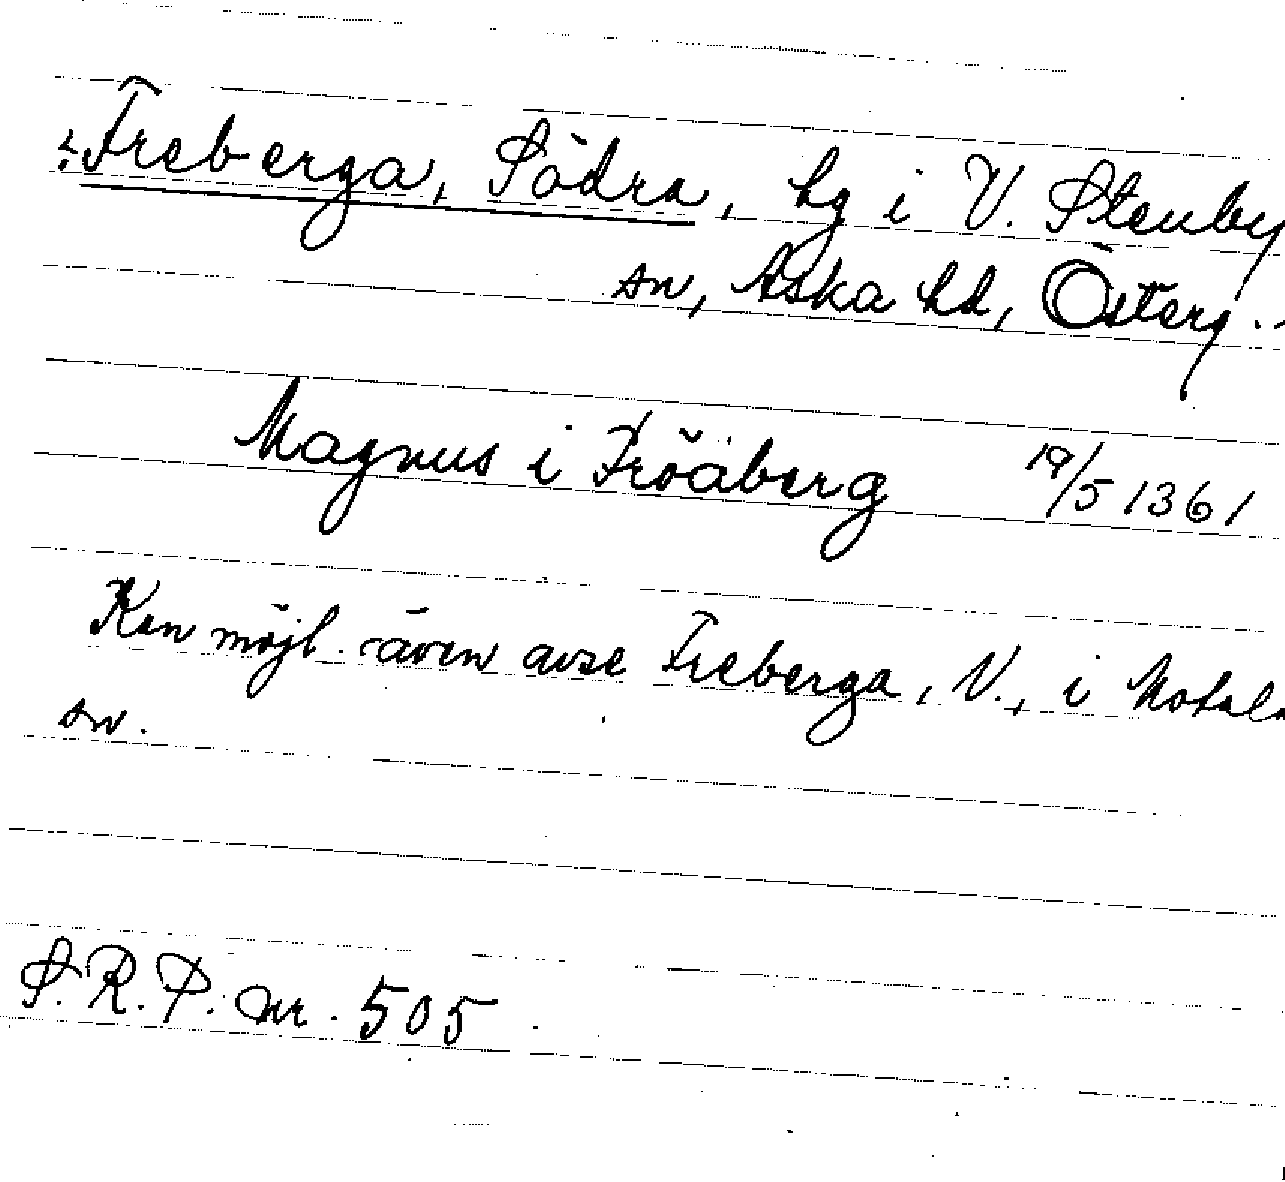 :Freberga, Södra, hg i V. Stenby
sn, Aska hd, Österg.
Magnus i Fröäberg 19/5 1361
Kan möjl. även avse Freberga, N., i Motala
sn.
S.R.P. nr. 505